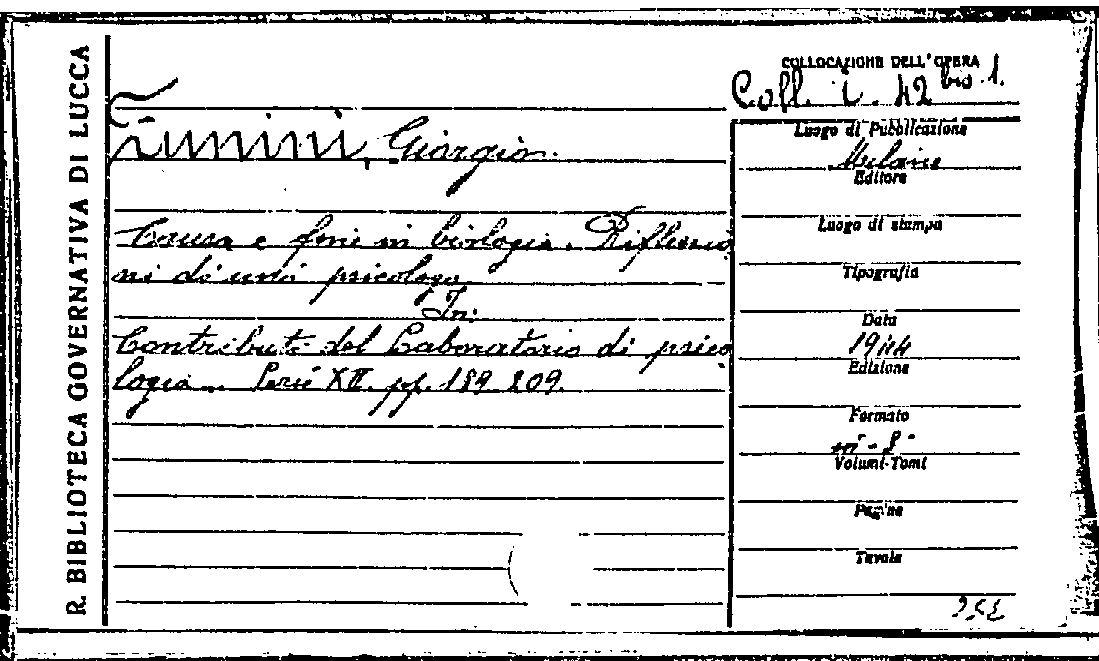 R. BIBLIOTECA GOVERNATIVA DI LUCCA
COLLOCAZIONE DELL'OPERA
Coll. i. 42 bis 1.
Zunini, Giorgio.
Causa e fini in biologia. Riflessio
ni di uno psicologo
In:
Contributi del Laboratorio di psico
logia. Serie XII. pp. 189 209.
Luogo di Pubblicazione
Milano
Editore
Luogo di stampa
Tipografia
Data
1944
Edizione
Formato
in-8°
Volumi-Tomi
Pagine
Tavole